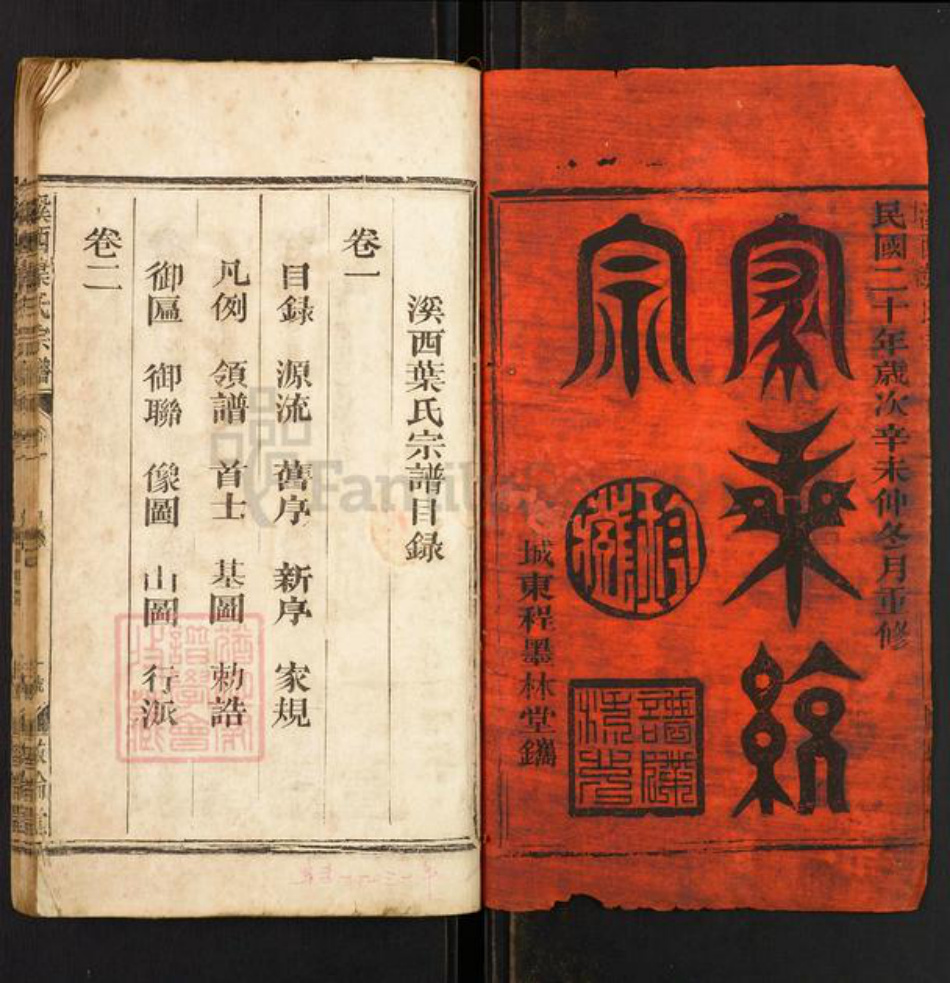 民國二十年歲次辛未仲冬月重修
家乘統
宗
譜牒流芳
城東程墨林堂鐫
溪西葉氏宗譜目錄
卷一
目錄 源流 舊序 新序 家規
凡例 領譜 首士 基圖 勅誥
御區 御聯 像圖 山圖 行派
卷二
溪西葉氏宗譜